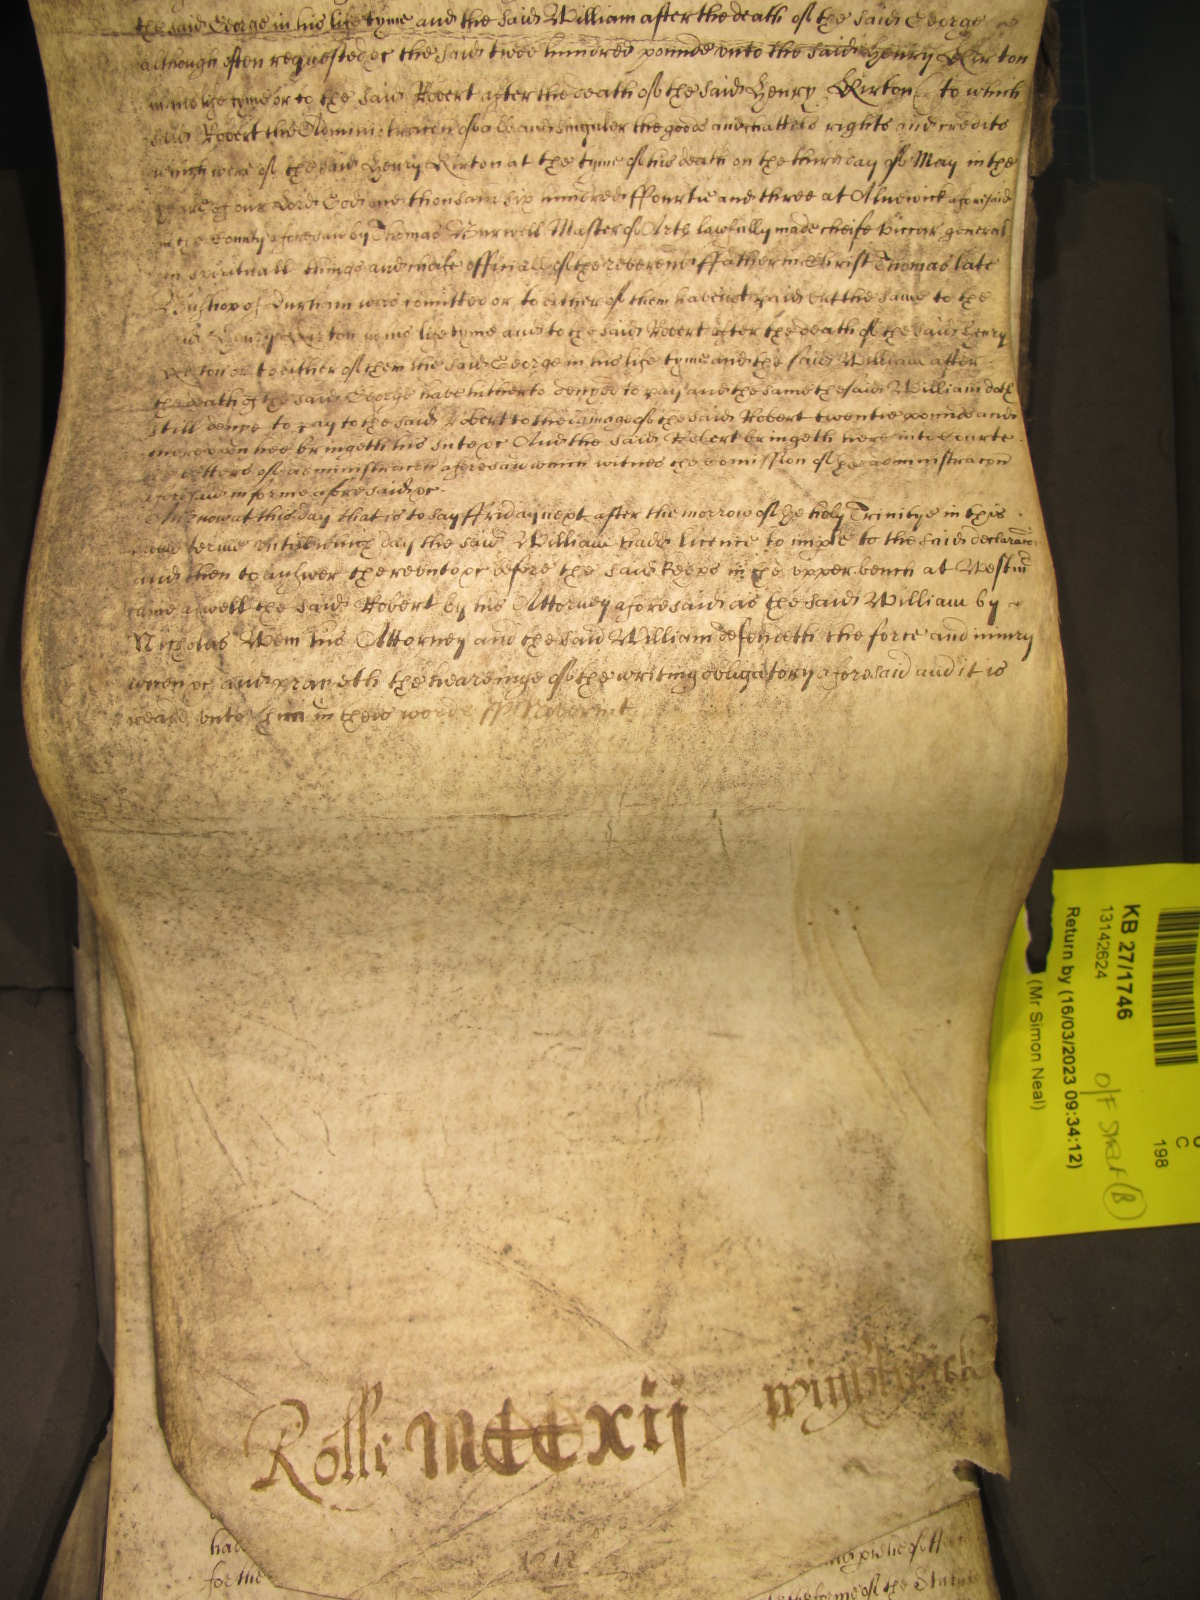 the said George in his life tyme and the said William after the death of the said George
although often requested &c the said twoe hundred pounds unto the said Henry Kirton
in his life tyme or to the said Robert after the death of the said Henry Kirton to which
said Robert the Administracon of all and singuler the goods and chattels rights and credits
which were of the said Henry Kirton at the tyme of his death on the third day of May in the
yeare of our Lord God one thousand six hundred ffourtie and three at Alnewick aforesaid
in the County aforesaid by Thomas Burwell Master of Arts lawfully made cheife Viccar generall
in spirituall things and cheife officiall of the reverend ffather in Christ Thomas late
Bushop of Durham was comitted or to either of them have not paid but the same to the
said Henry Kirton in his life tyme and to the said Robert after the death of the said Henry
Kirton or to either of them the said George in his life tyme and the said William after
the death of the said George have hitherto denyed to pay and the same the said William doth
still denye to pay to the said Robert to the damage of the said Robert twentie pounds and
thereupon hee bringeth his Sute &c And the said Robert bringeth here into Courte
the Letters of administracon aforesaid which witnes the Comission of the administracon
aforesaid in forme aforesaid &c
And now at this day that is to say ffriday next after the morrow of the holy Trinitye in this
same terme untill which day the said William had licence to imple to the said declaracon
and then to answer thereunto &c before the said Keeps in the upper bench at Westm
came aswell the said Robert by his Attorney aforesaid as the said William by
Nicholas Wem his Attorney and the said William defendeth the force and iniury
when &c and prayeth the heareinge of the writing obligatory aforesaid and it is
reade unto him in theis words ss Noverint
Rolle MCCxij
wightwick
1212
had
for the
of the
the forme of the Statut
KB 27/1746
13142624
Return by (16/03/2023 09:34:12)
(Mr Simon Neal)
O/F Strat (B)
C
198